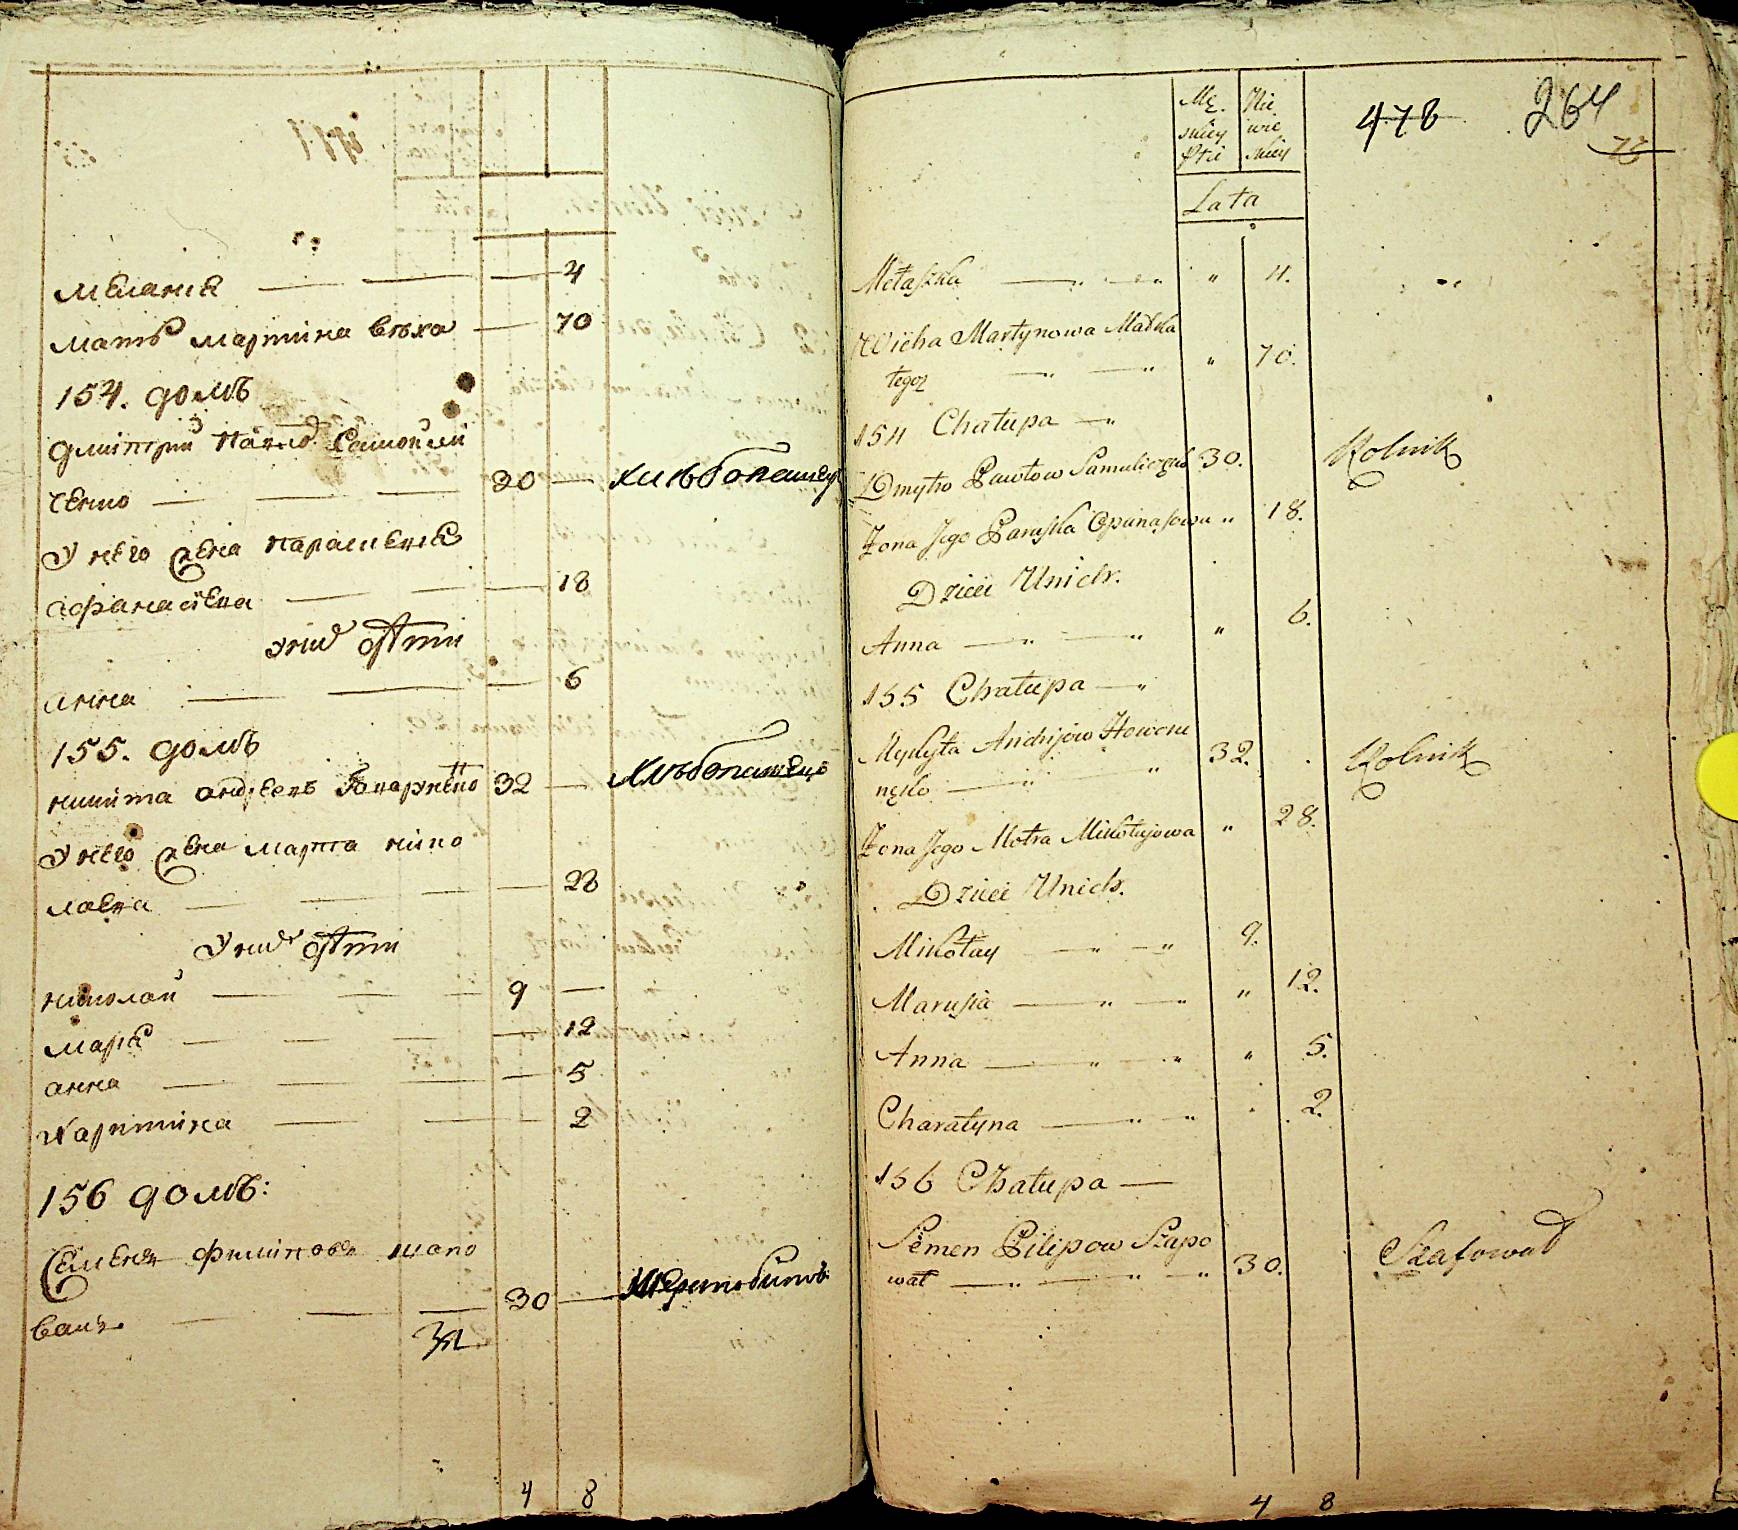 меланіѣ — — — 4
мать мартина вѣха — 70
154. домъ
дмитрій павлов Самойли
ченко — — — 30 — хлѣбопашец
У него жена параскевиѣ
афанасіева — — — 18
У них дѣти
анна — — — 6
155. домъ
никита андреевъ 32 — хлѣбопашецъ
У него жена марта нико
лаева — — — 28
У них дѣти
николай — — — 9 —
маріѣ — — — 12
анна — — — 5
харитина — — — 2
156 домъ:
Семенъ филиповъ шапо
валъ — — — 30 —
4 8
Mę Nie
skiey wie
Płci skiey
478 264
78
Lata
Melaszka — " — " " 4.
Wicha Martynowa Matka
tegoż — " — " " 70.
154 Chałupa — "
Dmytro Pawłow Samuliczęko 30. Rolnik
Żona Jego Paraska Opanasowa " 18.
Dzieci Unich.
Anna — " — " " 6.
155 Chałupa — "
Mykyta Andrijow Howore
nęko — " " 32. Rolnik
Żona Jego Motra Mikołajowa " 28.
Dzieci Unich.
Mikołay — " — " 9.
Marusia — " — " " 12.
Anna — " — " " 5.
Charatyna — " — " 2.
156 Chałupa —
Semen Pilipow Szapo
wał — " — " — " 30. Szafował
4 8